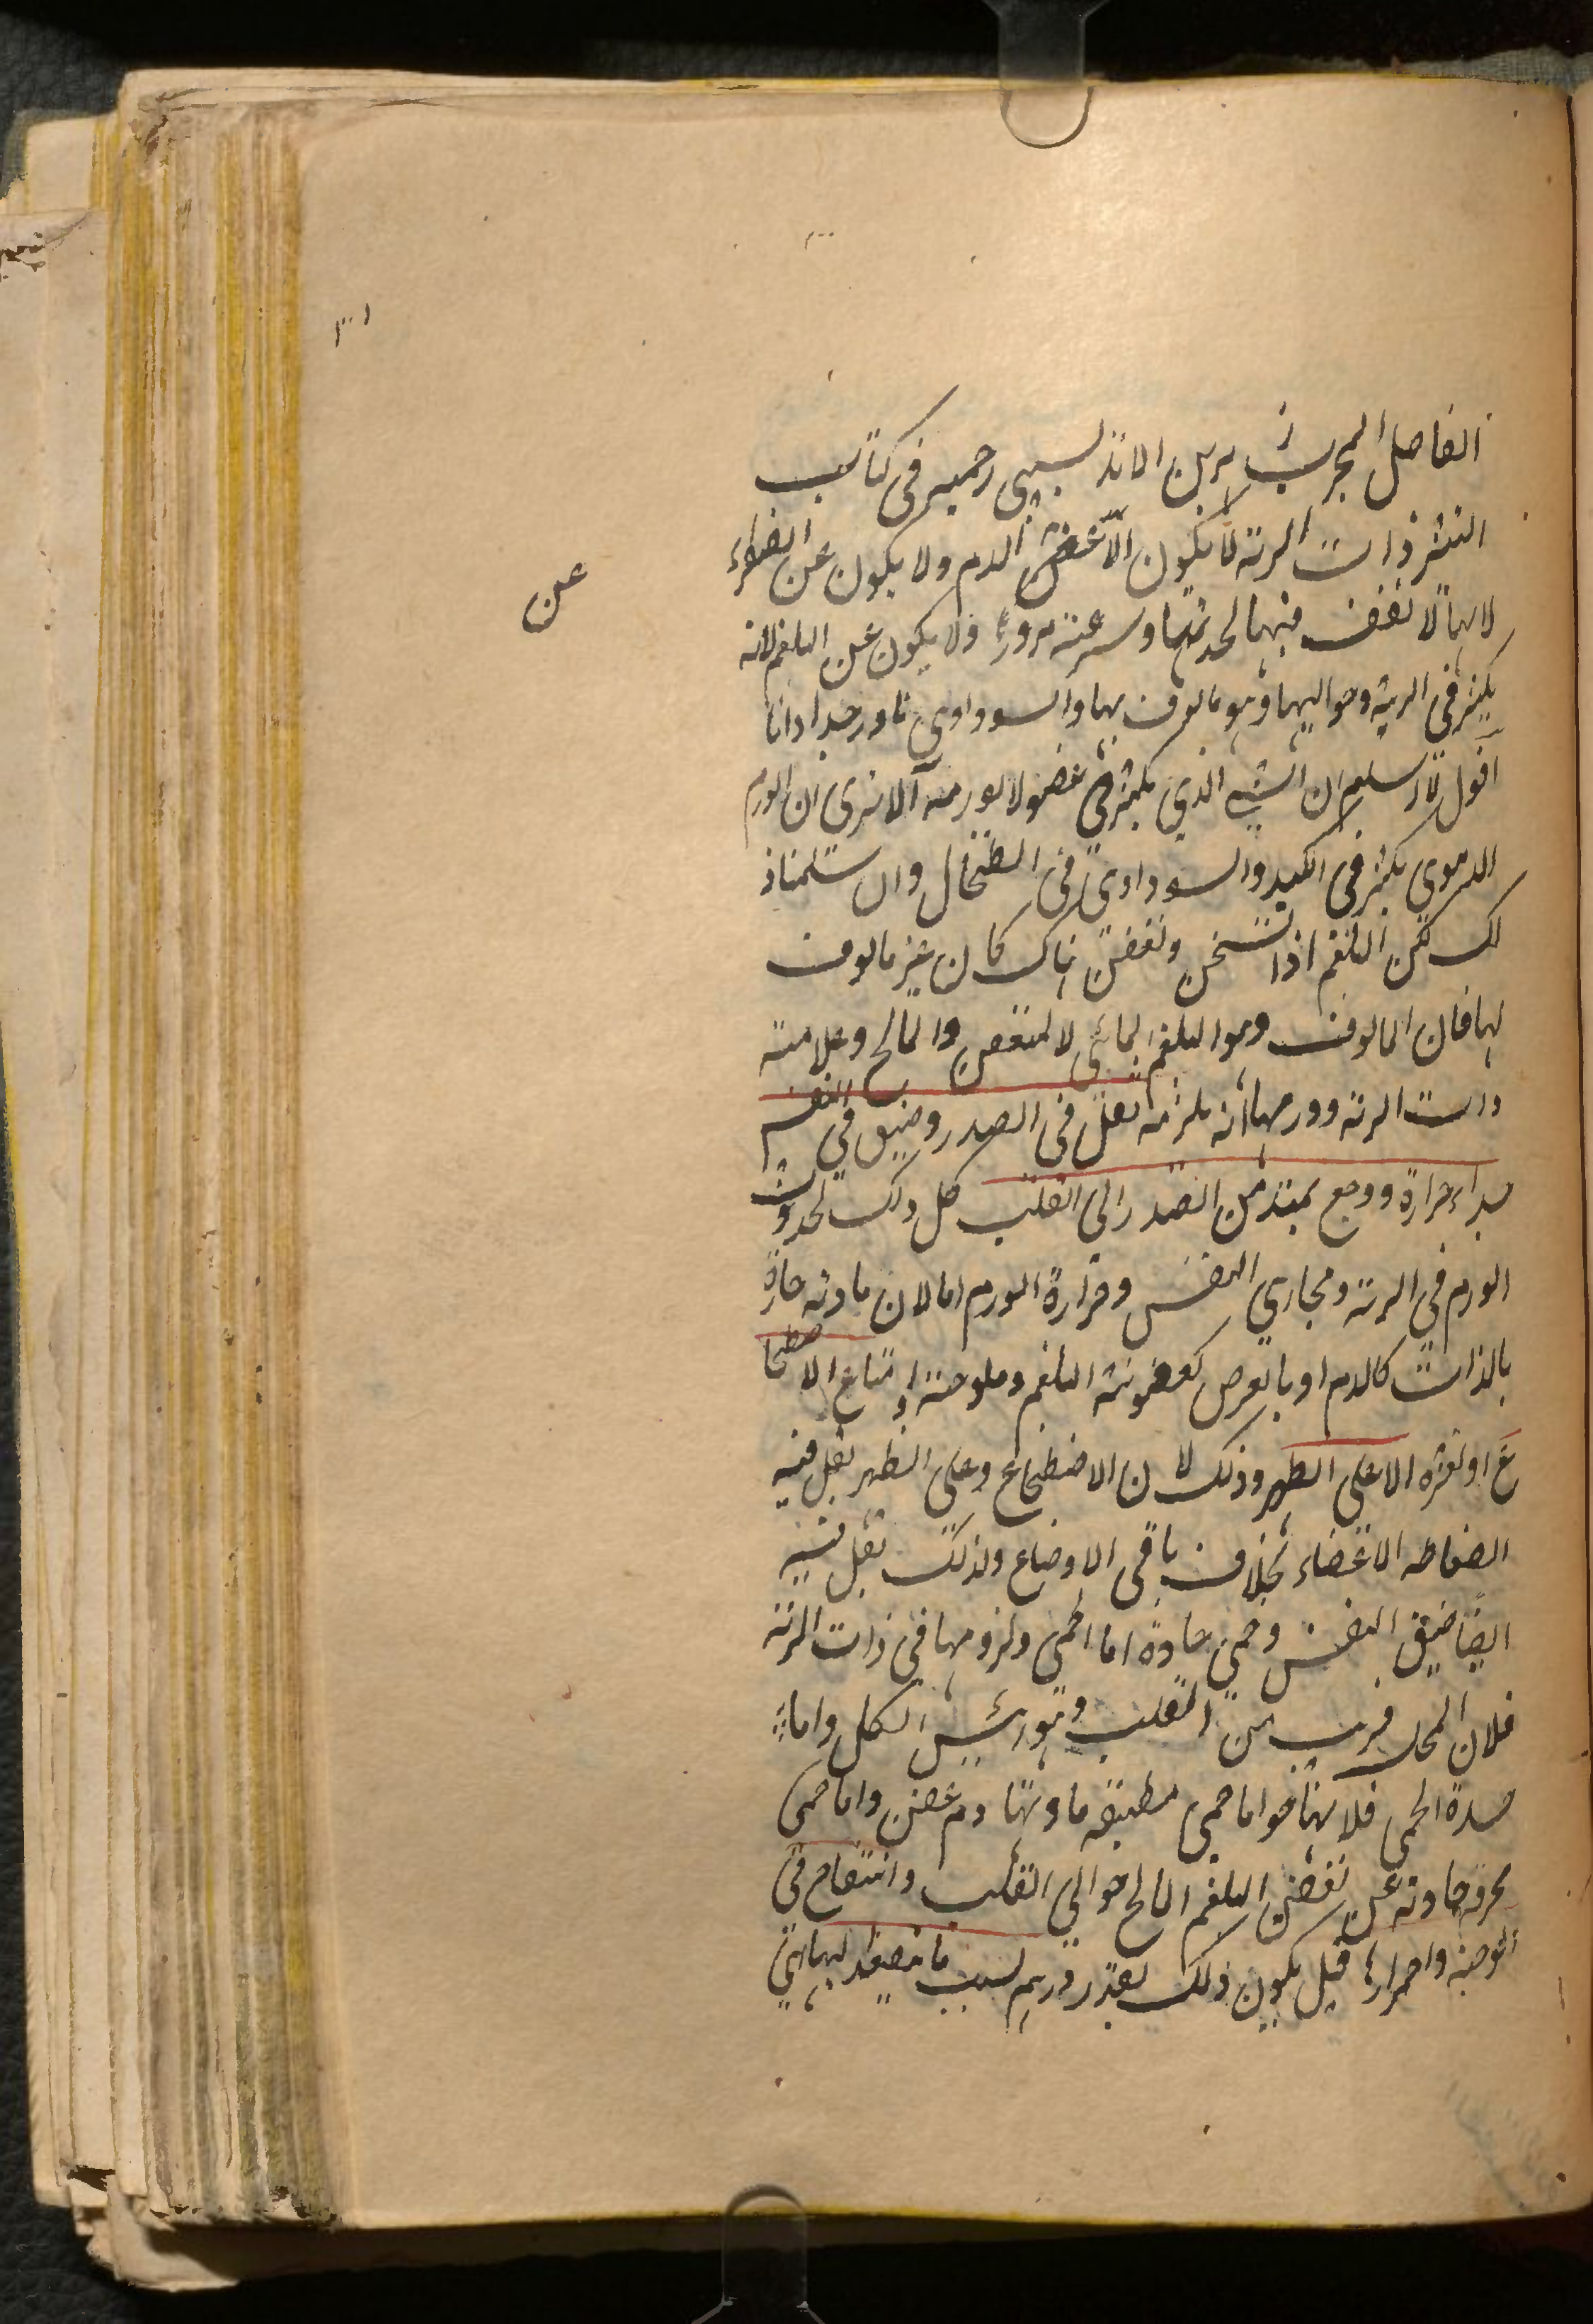 الفاصل المجر الاندلسي رحمه في كتاب
ذات الرية لا يكون الا عن الدم ولا يكون عن الصفراء
عن
لانها لا تقف فيها لحدتها وسرعة مرورها ولا يكون عن البلغم لانه
يكثر في الرية وحواليها وهو مالوف بها والسوداوي نادر جدا وانا
اقول لا نسلم ان الشي الذي يكثر في عضو لا يورمه الا ترى ان الورم
الدموي يكثر في الكبد والسوداوي في الطحال وان سلمنا ذ
لك لكن البلغم اذا تسخن وتعفن هناك كان غير مالوف
لها فان المالوف وهو البلغم المائي لا المتعفن والمالح وعلامة
ذات الرية وورمها انه يلزمه ثقل في الصدر وضيق في النفس
حرارة ووجع يمتد من الصدر الى القلب كل ذلك لحدوث
الورم في الرية ومجاري النفس وحرارة الورم اما لان مادته حارة
بالذات كالدم او بالعرض كعفونة البلغم وملوحته وامتناع الاضطجا
ع او تعسره الا على الظهر وذلك لان الاضطجاع على الظهر يقل فيه
انضغاط الاعضاء بخلاف باقي الاوضاع ولذلك يقل فيه
ايضا ضيق النفس وحمى حادة اما الحمى ولزومها في ذات الرية
فلان المحل قريب من القلب وهو رئيس الكل واما
حدة الحمى فلانها اما حمى مطبقة مادتها دم عفن واما حمى
محرقة حادثة عن تعفن البلغم المالح حوالي القلب وانتفاخ في
الوجنة واحمرارها قيل يكون ذلك بقدر ورم بسبب ما يتصعد اليها من